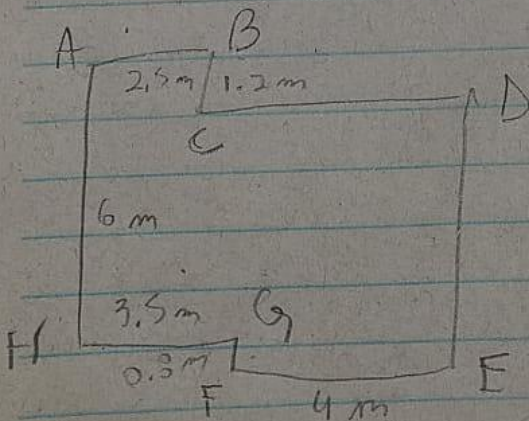 A B
2,5 m 1.2 m
C D
6 m
3.5 m G
H 0.8 m E
F 4 m